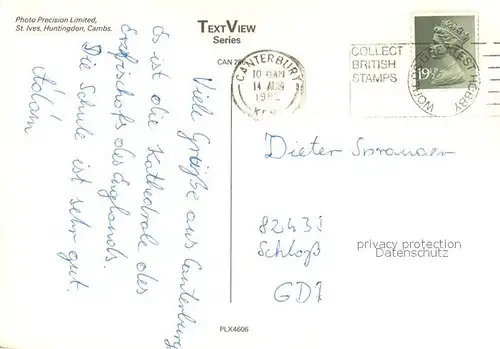 Photo Precision Limited,
St. Ives, Huntingdon, Cambs.
TEXTVIEW
Series
CAN
CANTERBURY
10
14 AUG
198
KENT
COLLECT
BRITISH
STAMPS
WORLD'S GREATEST HOBBY
19½
Viele Grüße aus Canterbury
Es ist die Kathedrale des
Erzbischofs des Englands.
Die Schule ist sehr gut.
Adam
Dieter
Schloß
privacy protection
Datenschutz
PLX4606